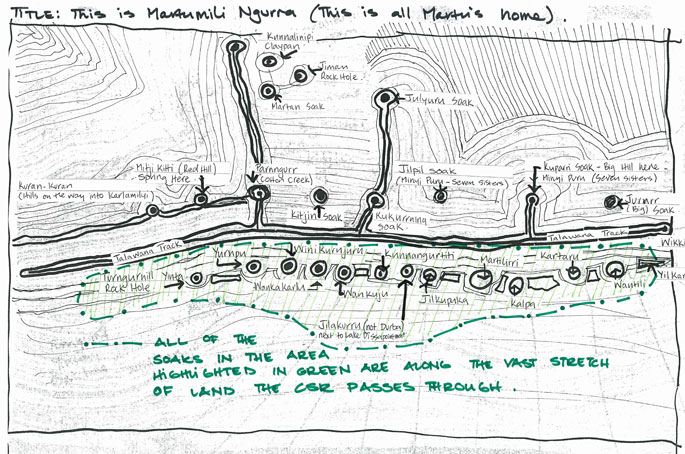 TITLE: This is Martumili Ngurra (This is all Martu's home).
Kunnalinipi
Claypan
Jiman
Rock Hole
Martan Soak
Julyuru Soak
Mitji Kitti (Red Hill)
Spring Here
Parnngurr
(Cotton Creek)
Jilpil Soak
(Minyi Puru - Seven Sisters)
Kuparri Soak - Big Hill here -
Minyi Puru (Seven Sisters)
Kuran-Kuran
(Hills on the way into Karlamilyi)
Kitjin Soak
Kukurnning
Soak
(Big) Soak
Talawana Track
Talawana Track
Wikki
Yumpu
Wini Kurujuru
Kunnangurtiti
Martilirri
Kartaru
Turngurnill
Rock Hole
Yinta
Wankakarlu
Wankuju
Jilkupuka
Kalpa
Wantili
Yilkar
Jilakurru (not Durba)
next to Lake Disappointment
ALL OF THE
SOAKS IN THE AREA
HIGHLIGHTED IN GREEN ARE ALONG THE VAST STRETCH
OF LAND THE CSR PASSES THROUGH.